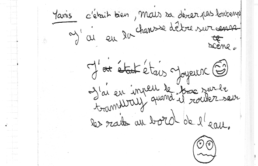 Yanis c'était bien, mais sa durer pas lontemp
J'ai eu la chance d'être sur
scène.
J'ai était étais Joyeux
J'ai eu un peu le sur le
tramway quand il rouler sur
les rails au bord de l'eau.